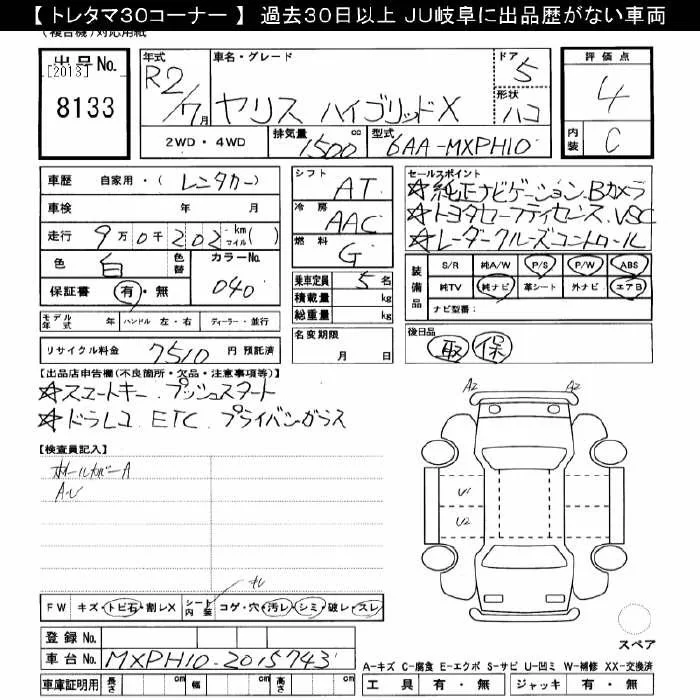 【 トレタマ30コーナー 】 過去30日以上 JU岐阜に出品歴がない車両
(複合機)対応用紙
出品No.
[2013]
8133
年式 R2/7月
車名・グレード
ヤリス ハイブリッドX
ドア 5
形状 ハコ
評価点 4
内装 C
2WD・4WD
排気量 1500 cc
型式 6AA-MXPH10
車歴 自家用・(レンタカー)
車検 年 月
走行 9万0千202 km マイル( )
色 白
色替
カラーNo. 040
保証書 有・無
モデル年式 年 ハンドル 左・右 ディーラー・並行
リサイクル料金 7510 円 預託済
シフト AT
冷房 AAC
燃料 G
乗車定員 5 名
積載量 kg
総重量 kg
名変期限 月 日
セールスポイント
☆純正ナビゲーション.Bカメラ
☆トヨタセーフティセンス.VSC
☆レーダークルーズコントロール
装備品
S/R 純A/W P/S P/W ABS
純TV 純ナビ 革シート 外ナビ エアB
ナビ型番:
後日品
取 保
【出品店申告欄(不良箇所・欠品・注意事項等)】
☆スマートキー.プッシュスタート
☆ドラレコ.ETC.プライバシーガラス
【検査員記入】
ホイールカバーA
A.U
A2 A2
U1
U2
キレ
FW キズ・トビ石・割レX シート内装 コゲ・穴・汚レ・シミ・破レ・スレ
スペア
登録No.
車台No. MXPH10-2015743
A-キズ C-腐食 E-エクボ S-サビ U-凹ミ W-補修 XX-交換済
車庫証明用 長さ cm 幅 cm 高さ cm
工具 有・無 ジャッキ 有・無